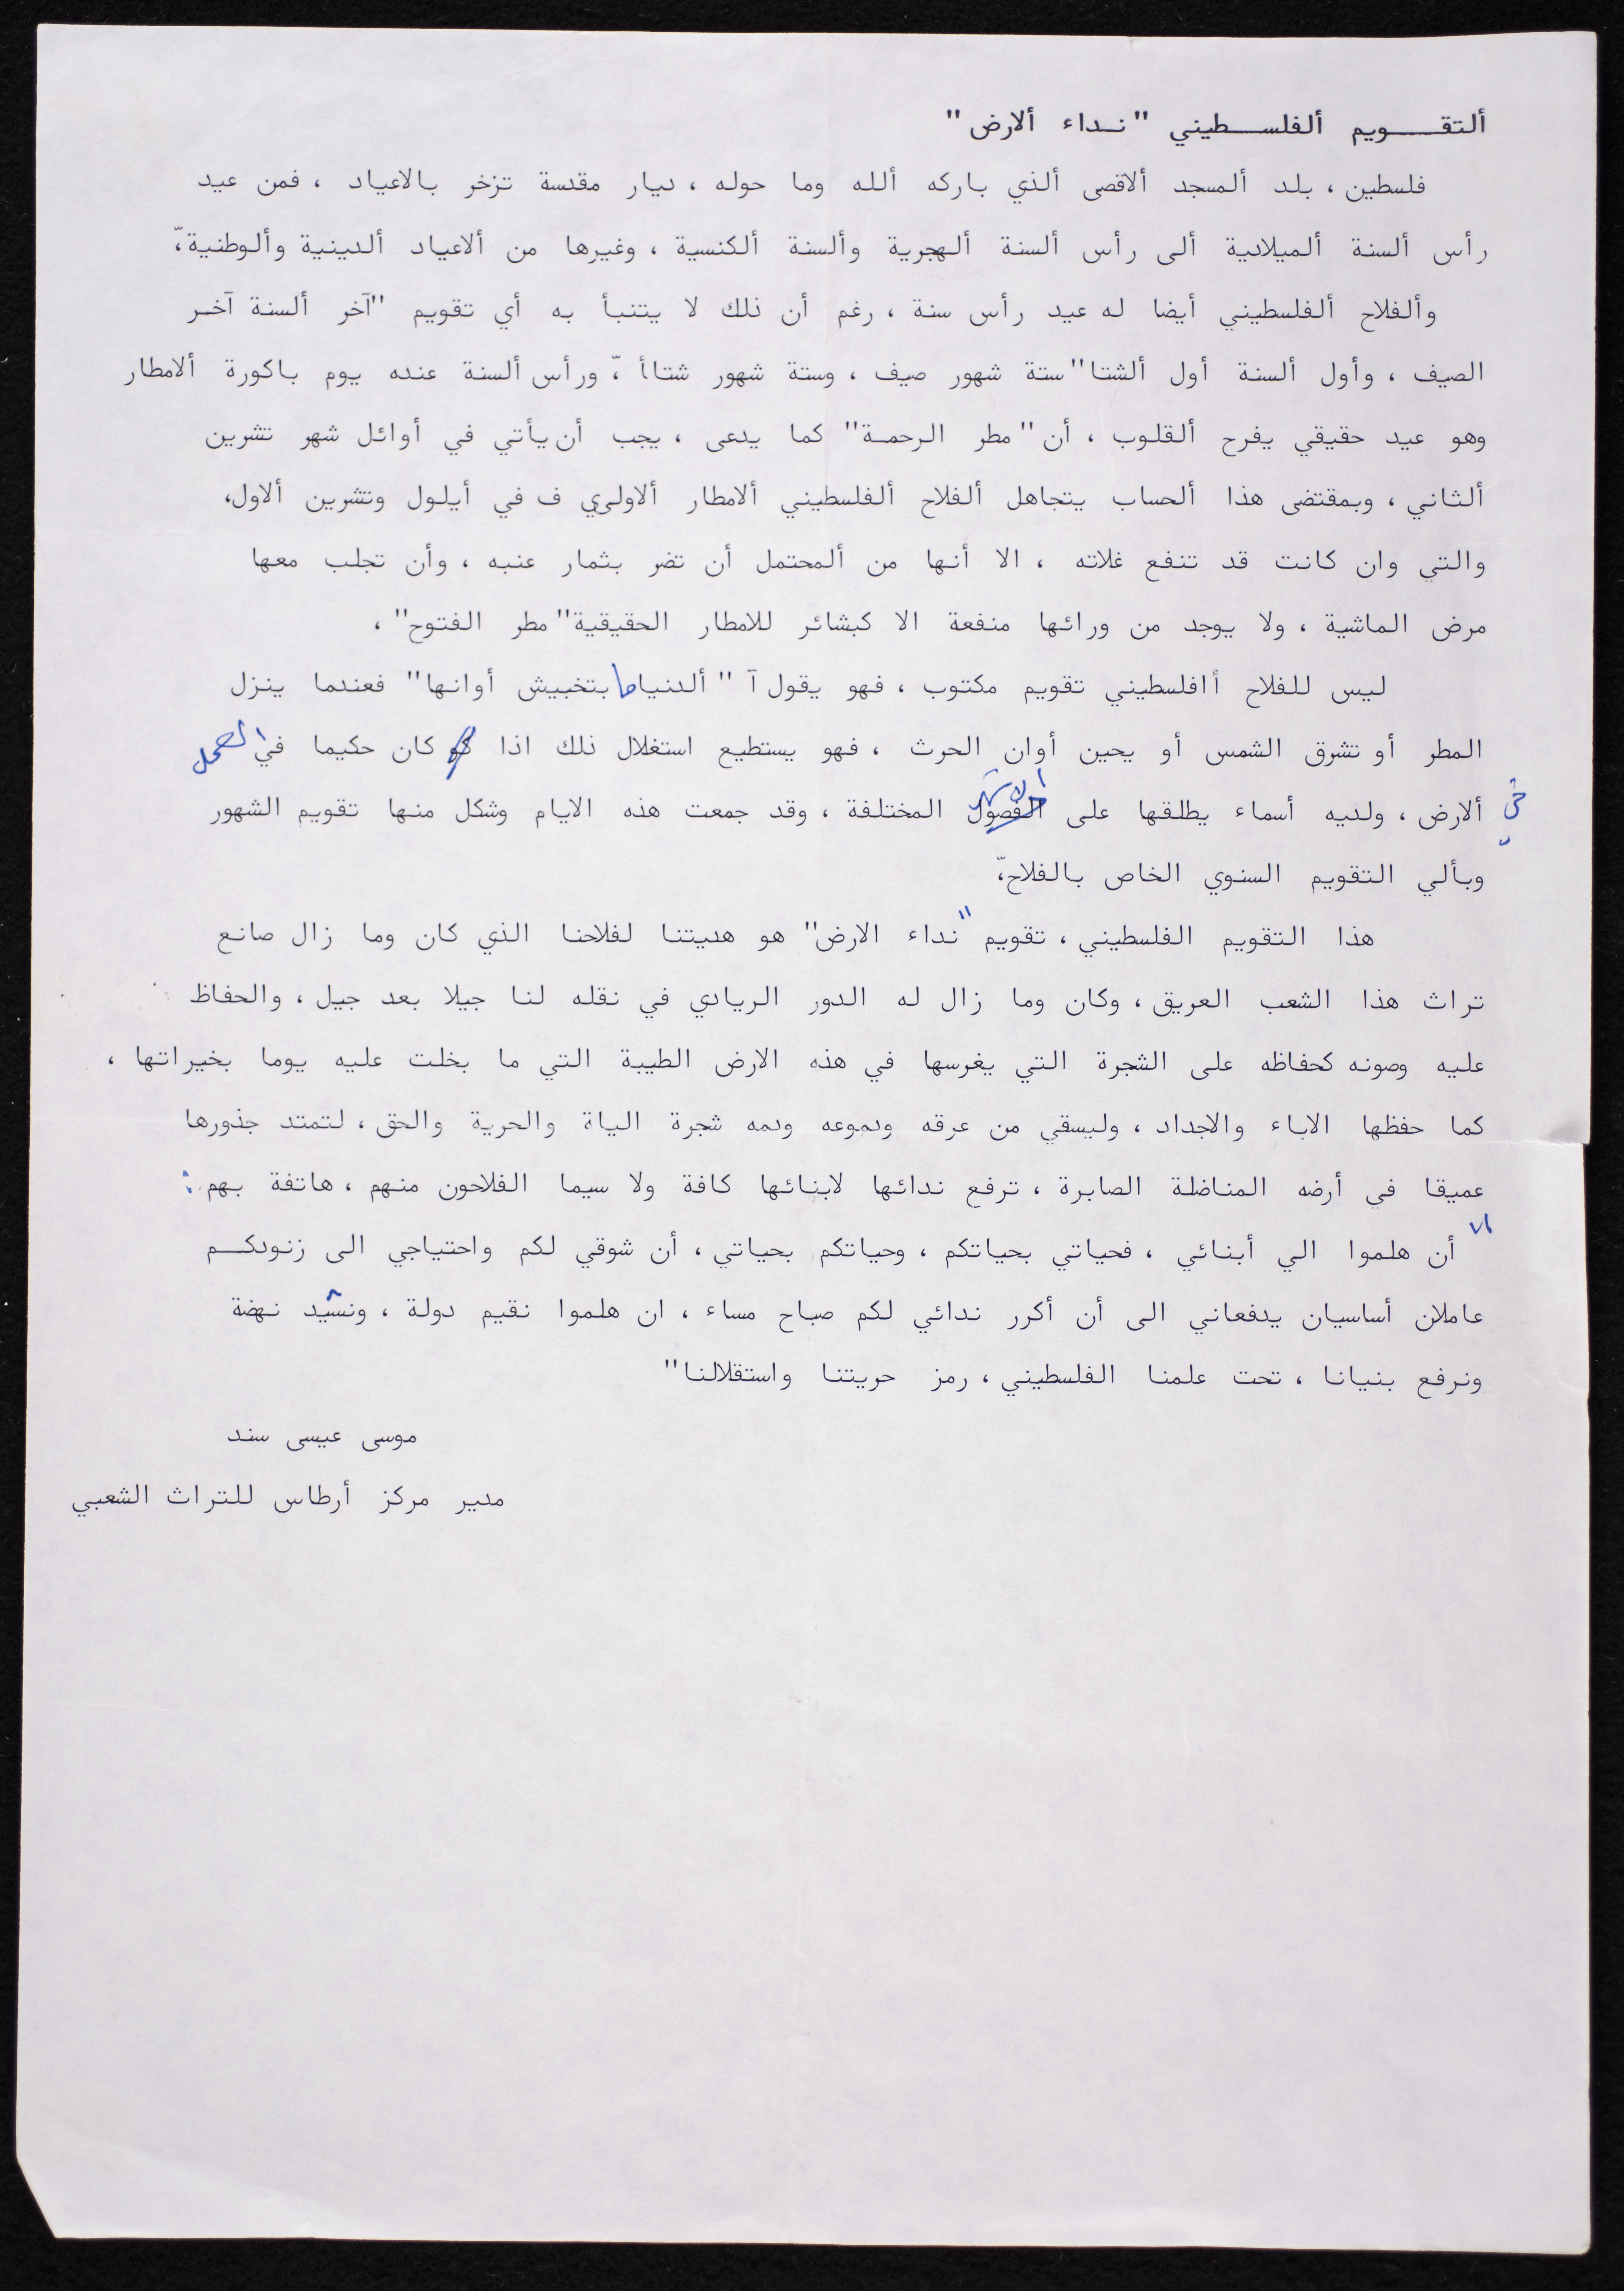 ألتقـــويم ألفلســطيني "نـداء ألارض"
فلسطين، بلد ألمسجد ألاقصى ألذي باركه ألله وما حوله، ديار مقدسة تزخر بالاعياد، فمن عيد
رأس ألسنة ألميلادية ألى رأس ألسنة ألهجرية وألسنة ألكنسية، وغيرها من ألاعياد ألدينية وألوطنية،ّ
وألفلاح ألفلسطيني أيضا له عيد رأس سنة، رغم أن ذلك لا يتنبأ به أي تقويم "آخر ألسنة آخـر
الصيف، وأول ألسنة أول ألشتا" ستة شهور صيف، وستة شهور شتاأ،ّ ورأس ألسنة عنده يوم باكورة ألامطار
وهو عيد حقيقي يفرح ألقلوب، أن "مطر الرحمـة" كما يدعى، يجب أن يأتي في أوائل شهر تشرين
ألثاني، وبمقتضى هذا ألحساب يتجاهل ألفلاح ألفلسطيني ألامطار ألاولى ف في أيلول وتشرين ألاول،
والتي وان كانت قد تنفع غلاته، الا أنها من ألمحتمل أن تضر بثمار عنبه، وأن تجلب معها
مرض الماشية، ولا يوجد من ورائها منفعة الا كبشائر للامطار الحقيقية "مطر الفتوح"،
ليس للفلاح أافلسطيني تقويم مكتوب، فهو يقول آ "ألدنيا ما بتخبيش أوانها" فعندما ينزل
المطر أو تشرق الشمس أو يحين أوان الحرث، فهو يستطيع استغلال ذلك اذا كان حكيما في العمل
في ألارض، ولديه أسماء يطلقها على الفصول الاشهر المختلفة، وقد جمعت هذه الايام وشكل منها تقويم الشهور
وبألي التقويم السنوي الخاص بالفلاح،ّ
هذا التقويم الفلسطيني، تقويم "نداء الارض" هو هديتنا لفلاحنا الذي كان وما زال صانع
تراث هذا الشعب العريق، وكان وما زال له الدور الريادي في نقله لنا جيلا بعد جيل، والحفاظ
عليه وصونه كحفاظه على الشجرة التي يغرسها في هذه الارض الطيبة التي ما بخلت عليه يوما بخيراتها،
كما حفظها الاباء والاجداد، وليسقي من عرقه ودموعه ودمه شجرة الياة والحرية والحق، لتمتد جذورها
عميقا في أرضه المناضلة الصابرة، ترفع ندائها لابنائها كافة ولا سيما الفلاحون منهم، هاتفة بهم:
"أن هلموا الي أبنائي، فحياتي بحياتكم، وحياتكم بحياتي، أن شوقي لكم واحتياجي الى زنودكــم
عاملان أساسيان يدفعاني الى أن أكرر ندائي لكم صباح مساء، ان هلموا نقيم دولة، ونشيد نهضة
ونرفع بنيانا، تحت علمنا الفلسطيني، رمز حريتنا واستقلالنا"
موسى عيسى سند
مدير مركز أرطاس للتراث الشعبي